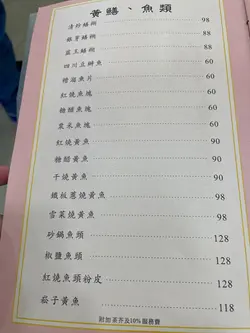 黃鱔、魚類
清炒鱔糊 98
銀芽鱔糊 88
韮王鱔糊 88
四川豆瓣魚 60
糟溜魚片 60
紅燒魚塊 60
糖醋魚塊 60
粟米魚塊 60
紅燒黃魚 90
糖醋黃魚 90
干燒黃魚 90
鐵板蔥燒黃魚 98
雪菜燒黃魚 98
砂鍋魚頭 128
椒鹽魚頭 128
紅燒魚頭粉皮 128
茄子黃魚 118
附加茶芥及10%服務費